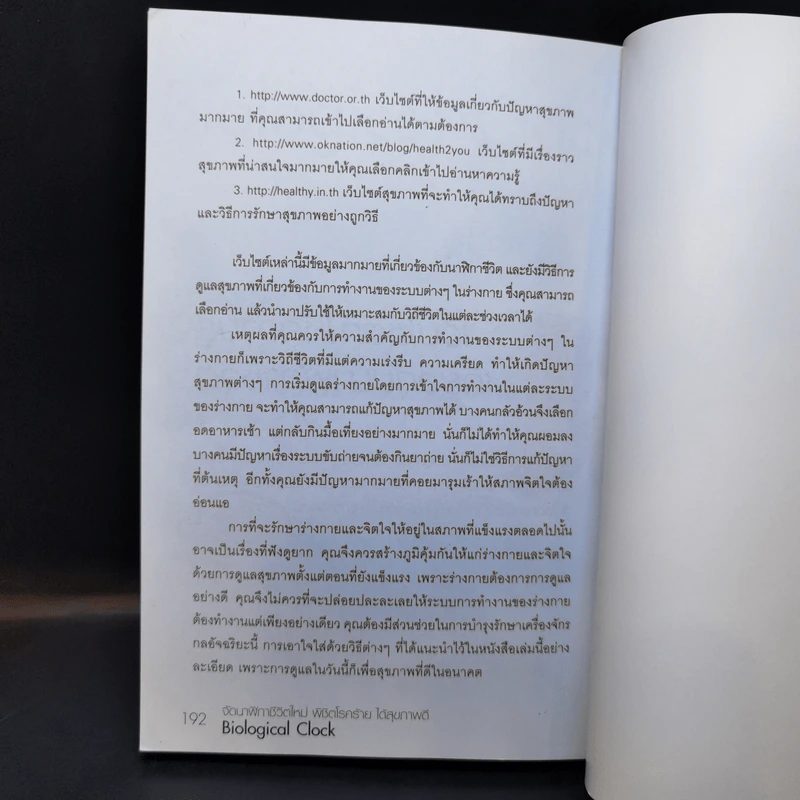 1. http://www.doctor.or.th เว็บไซต์ที่ให้ข้อมูลเกี่ยวกับปัญหาสุขภาพ
มากมาย ที่คุณสามารถเข้าไปเลือกอ่านได้ตามต้องการ
2. http://www.oknation.net/blog/health2you เว็บไซต์ที่มีเรื่องราว
สุขภาพที่น่าสนใจมากมายให้คุณเลือกคลิกเข้าไปอ่านหาความรู้
3. http://healthy.in.th เว็บไซต์สุขภาพที่จะทำให้คุณได้ทราบถึงปัญหา
และวิธีการรักษาสุขภาพอย่างถูกวิธี
เว็บไซต์เหล่านี้มีข้อมูลมากมายที่เกี่ยวข้องกับนาฬิกาชีวิต และยังมีวิธีการ
ดูแลสุขภาพที่เกี่ยวข้องกับการทำงานของระบบต่างๆ ในร่างกาย ซึ่งคุณสามารถ
เลือกอ่าน แล้วนำมาปรับใช้ให้เหมาะสมกับวิถีชีวิตในแต่ละช่วงเวลาได้
เหตุผลที่คุณควรให้ความสำคัญกับการทำงานของระบบต่างๆ ใน
ร่างกายก็เพราะวิถีชีวิตที่มีแต่ความเร่งรีบ ความเครียด ทำให้เกิดปัญหา
สุขภาพต่างๆ การเริ่มดูแลร่างกายโดยการเข้าใจการทำงานในแต่ละระบบ
ของร่างกาย จะทำให้คุณสามารถแก้ปัญหาสุขภาพได้ บางคนกลัวอ้วนจึงเลือก
อดอาหารเช้า แต่กลับกินมื้อเที่ยงอย่างมากมาย นั่นก็ไม่ได้ทำให้คุณผอมลง
บางคนมีปัญหาเรื่องระบบขับถ่ายจนต้องกินยาถ่าย นั่นก็ไม่ใช่วิธีการแก้ปัญหา
ที่ต้นเหตุ อีกทั้งคุณยังมีปัญหามากมายที่คอยมารุมเร้าให้สภาพจิตใจต้อง
อ่อนแอ
การที่จะรักษาร่างกายและจิตใจให้อยู่ในสภาพที่แข็งแรงตลอดไปนั้น
อาจเป็นเรื่องที่ฟังดูยาก คุณจึงควรสร้างภูมิคุ้มกันให้แก่ร่างกายและจิตใจ
ด้วยการดูแลสุขภาพตั้งแต่ตอนที่ยังแข็งแรง เพราะร่างกายต้องการการดูแล
อย่างดี คุณจึงไม่ควรที่จะปล่อยปละละเลยให้ระบบการทำงานของร่างกาย
ต้องทำงานแต่เพียงอย่างเดียว คุณต้องมีส่วนช่วยในการบำรุงรักษาเครื่องจักร
กลอัจฉริยะนี้ การเอาใจใส่ด้วยวิธีต่างๆ ที่ได้แนะนำไว้ในหนังสือเล่มนี้อย่าง
ละเอียด เพราะการดูแลในวันนี้ก็เพื่อสุขภาพที่ดีในอนาคต
192 จัดนาฬิกาชีวิตใหม่ พิชิตโรคร้าย ได้สุขภาพดี
Biological Clock